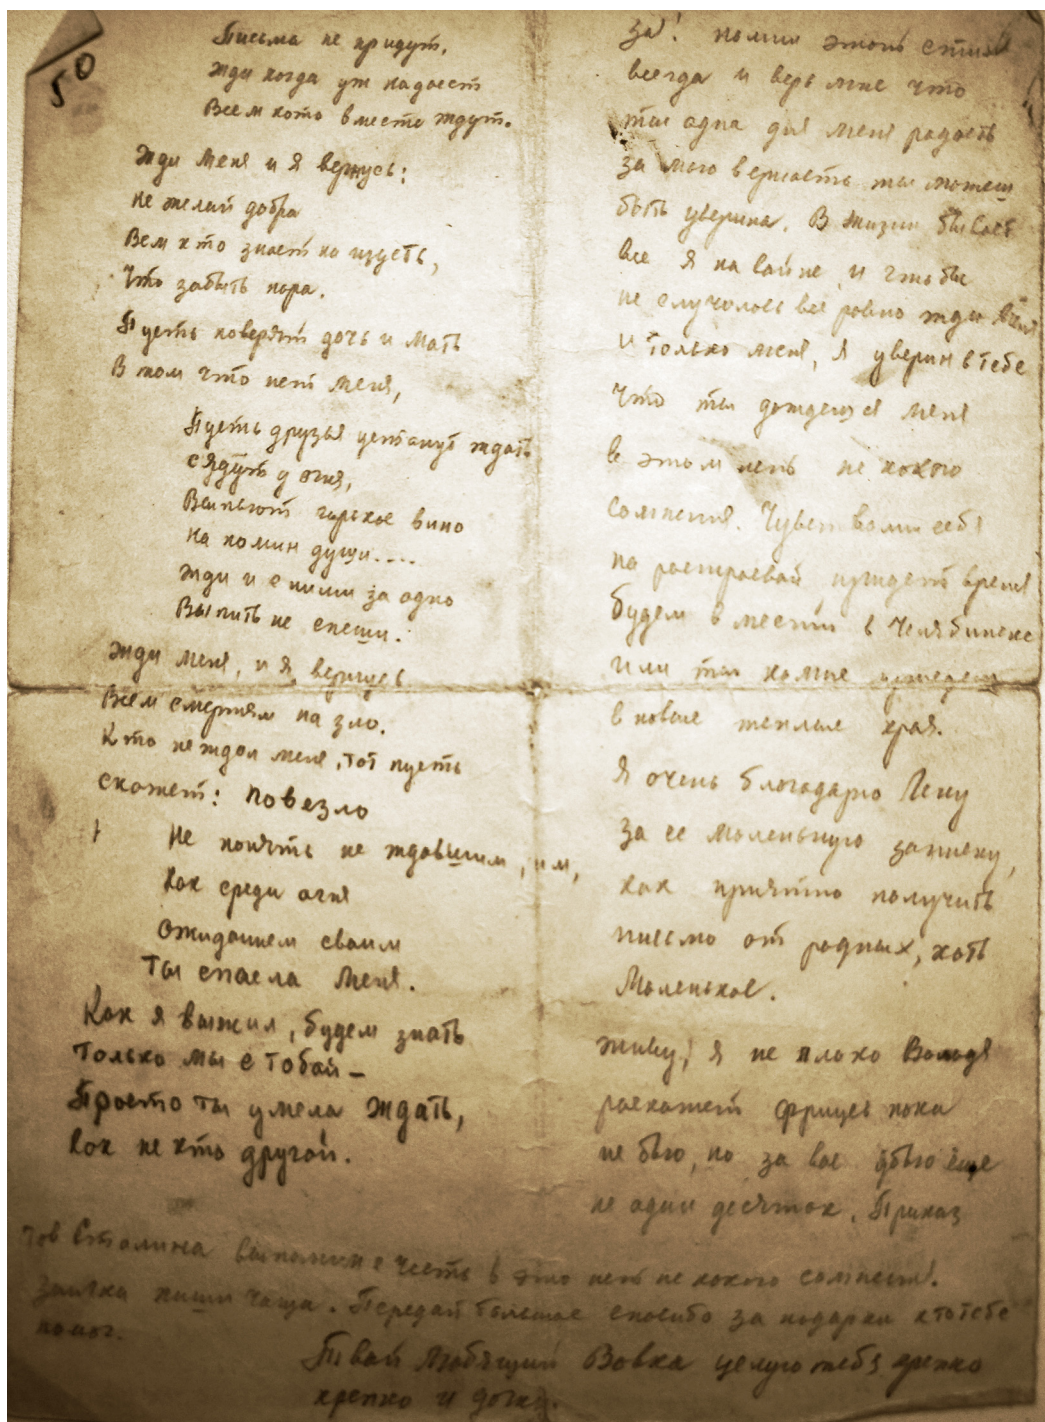 50
Письма не придут,
Жди когда уж надоест
Всем кото вместе ждут.
Жди меня и я вернусь:
не желай добра
Всем кто знает на изусть,
Что забыть пора.
Пусть поверят дочь и мать
В том что нет меня,
Пусть друзья устанут ждать
сядут у огня,
Выпьют горькое вино
на помин души....
Жди и с ними за одно
Выпить не спеши.
Жди меня, и я вернусь
Всем смертям на зло.
Кто не ждал меня, тот пусть
скажет: повезло
Не понять не ждавшим, им,
Как среди огня
Ожиданием своим
Ты спасла меня.
Как я выжил, будем знать
только мы с тобой—
Просто ты умела ждать,
как не кто другой.
За! помни этот стих
всегда и верь мне что
ты одна для меня радость
за мою верность ты можеш
быть уверина. В жизни бывает
все я на вайне и что бы
не случолось все ровно жди меня
и только меня, я уверин в тебе
что ты дождешся меня
в этом нет не какого
сомнения.
но растраевай придет время
будем в месте в Челябинске
или ты ко мне приедеш
в новые теплые края.
Я очень благодарю Лену
за ее маленькую записку,
как приятно получить
письмо от родных, хоть
Маленькое.
живу, я не плохо Володя
раскажет фрицев пока
не бью, но за вас убью еще
не один десяток. Приказ
тов Сталина выполним с честь в это нет не какого сомнения.
Заичка пиши чаща. Передай большое спосибо за подарки кто тебе
помог.
Твой Любящий Вовка целую тебя крепко
крепко и дочку.